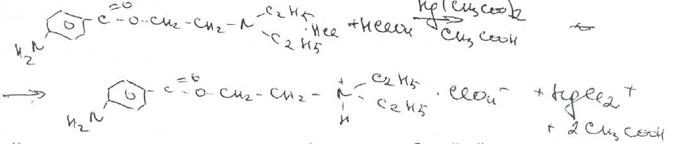 H₂N C=O O-CH₂-CH₂-N C₂H₅ C₂H₅ ·HCl + HClO₄ Hg(CH₃COO)₂ CH₃COOH
→ H₂N C=O O-CH₂-CH₂-N⁺ H C₂H₅ C₂H₅ ·ClO₄⁻ + HgCl₂ +
+ 2CH₃COOH